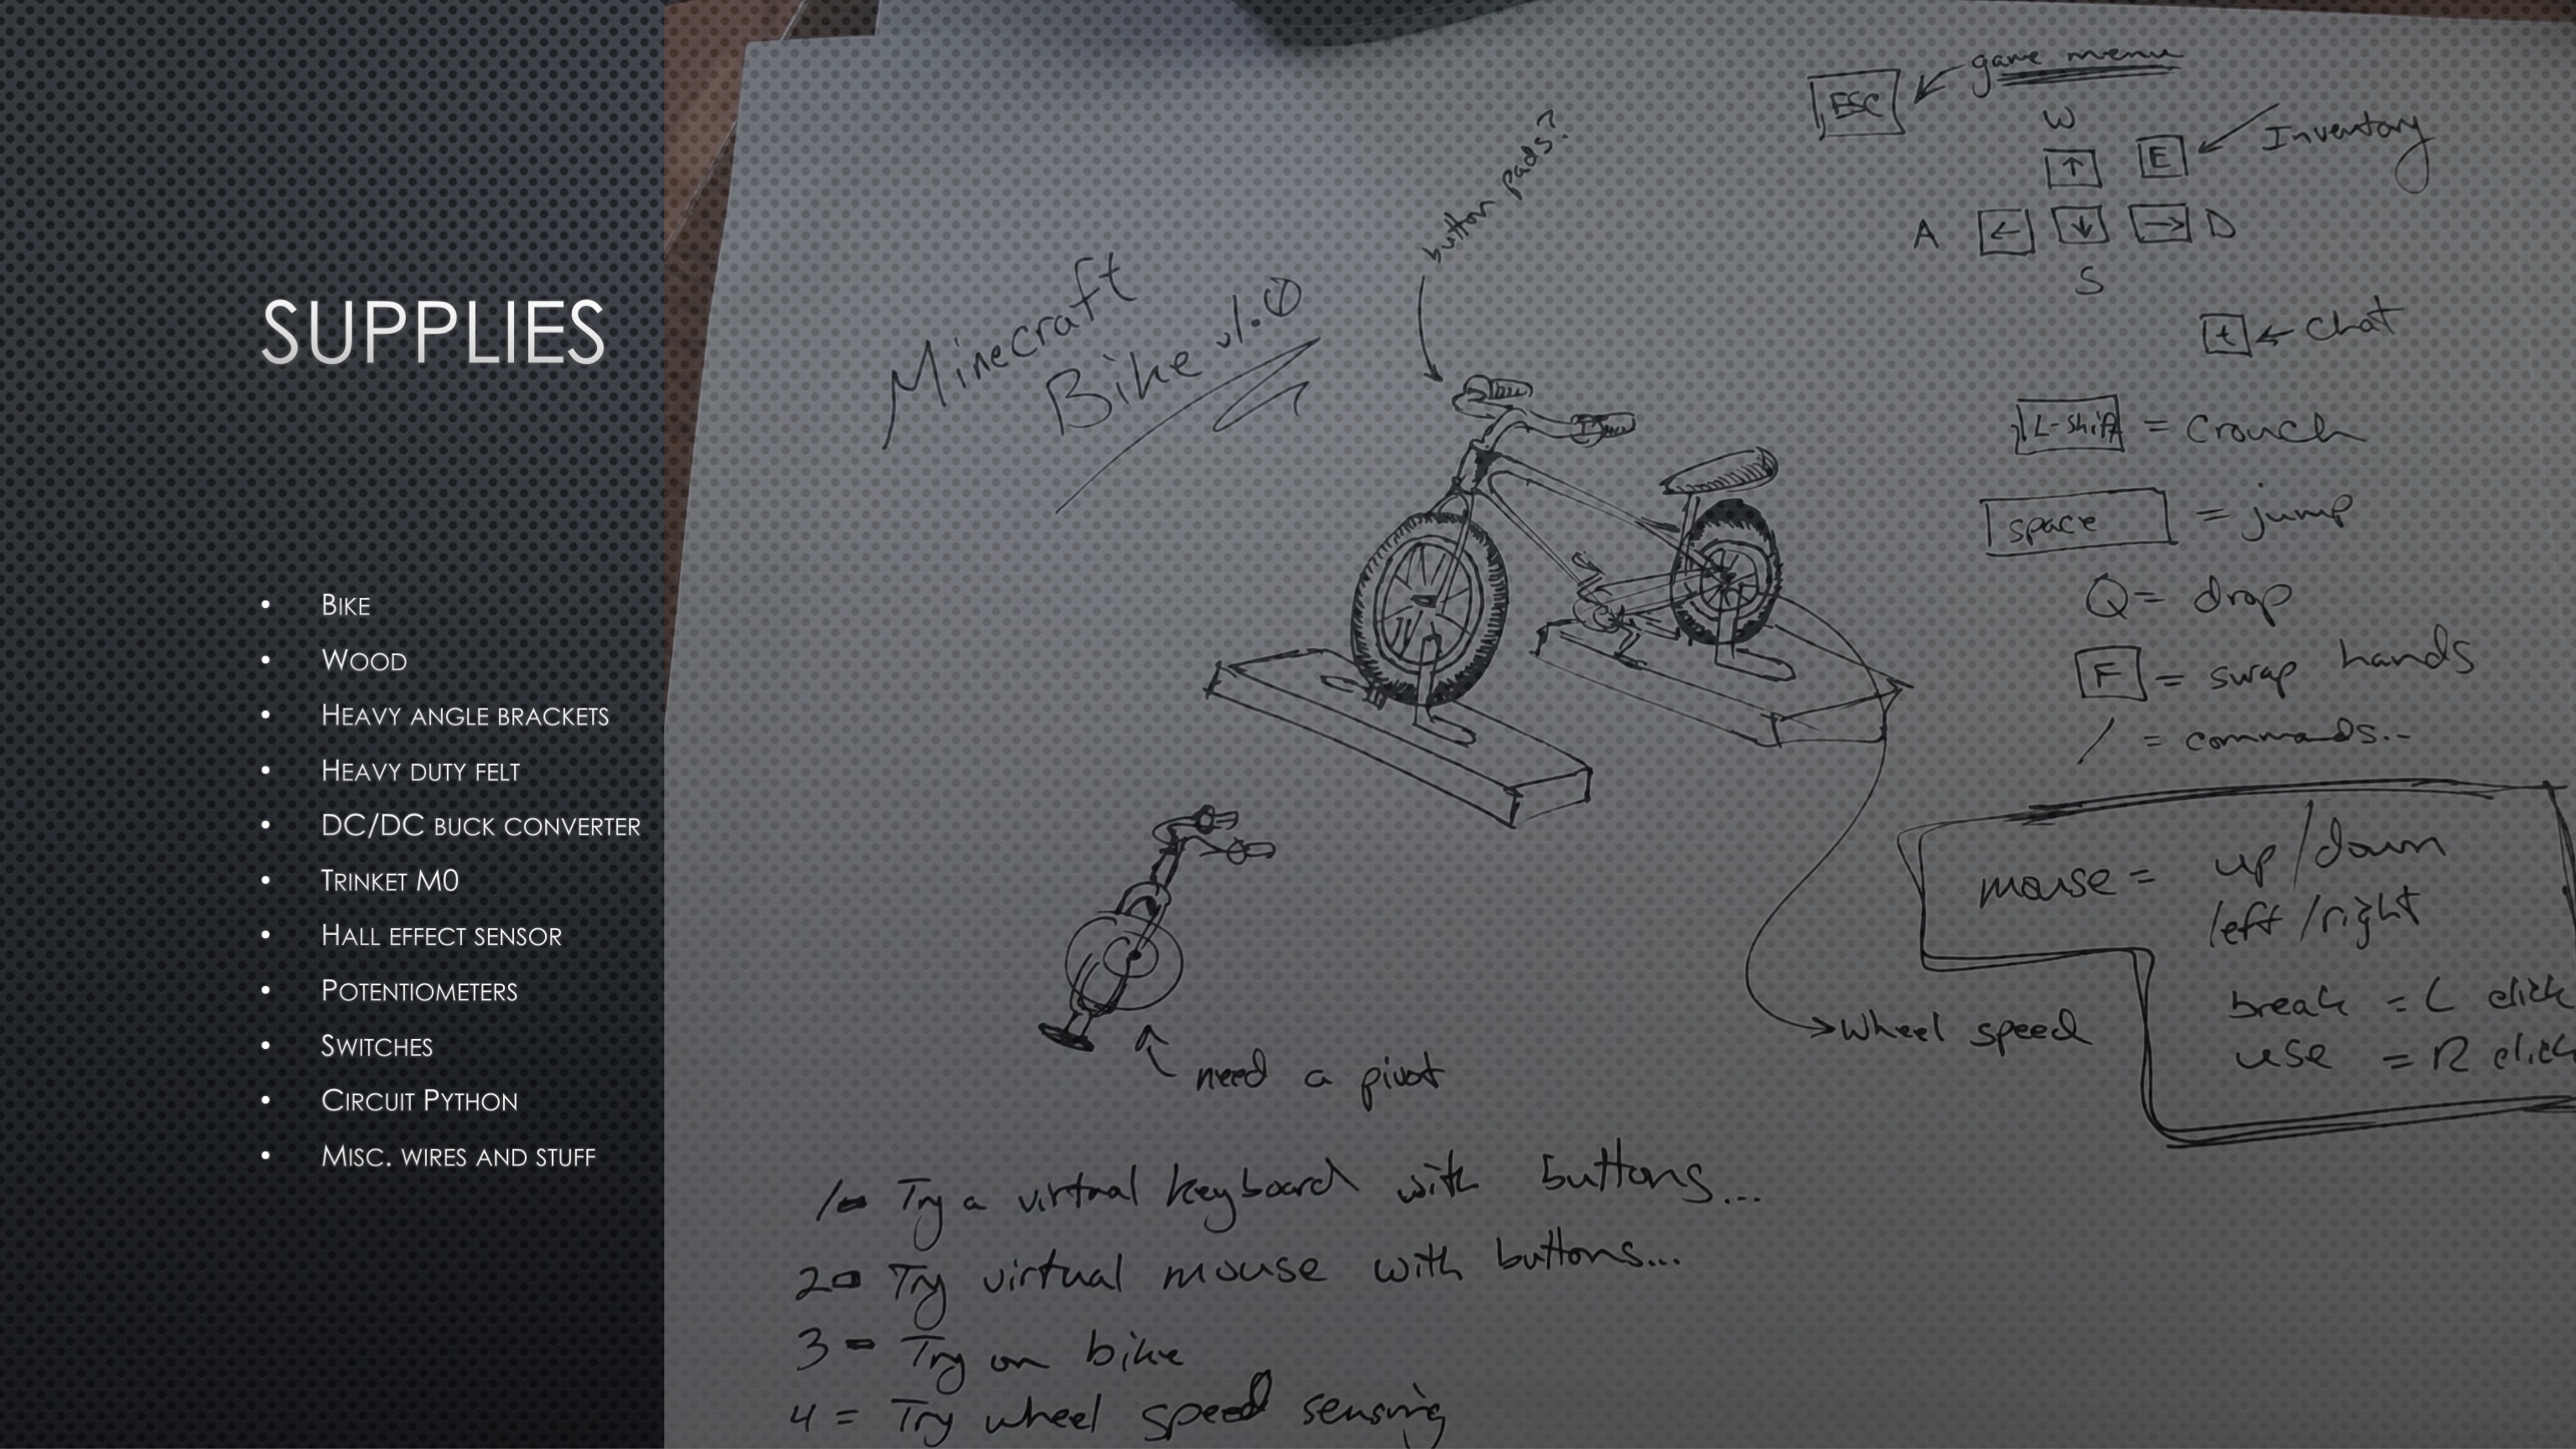 SUPPLIES
• BIKE
• WOOD
• HEAVY ANGLE BRACKETS
• HEAVY DUTY FELT
• DC/DC BUCK CONVERTER
• TRINKET M0
• HALL EFFECT SENSOR
• POTENTIOMETERS
• SWITCHES
• CIRCUIT PYTHON
• MISC. WIRES AND STUFF
Minecraft
Bike v1.0
button pads?
need a pivot
wheel speed
ESC ← game menu
W
↑ E ← Inventory
A ← ↓ → D
S
t ← chat
L-shift = crouch
space = jump
Q = drop
F = swap hands
/ = commands..
mouse = up/down
left/right
break = L click
use = R click
1 - Try a virtual keyboard with buttons...
2 - Try virtual mouse with buttons...
3 - Try on bike
4 = Try wheel speed sensing